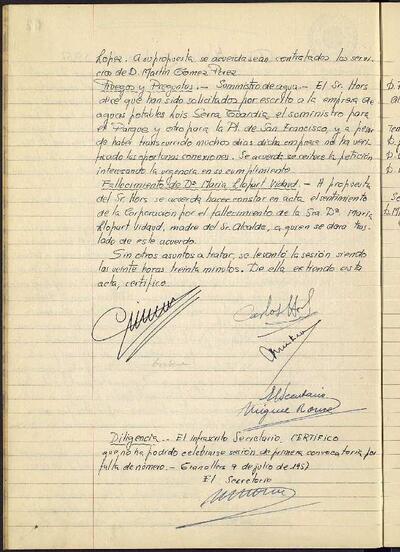 Lopez. A su propuesta se acuerda sean contratados los servi-
cios de D. Martín Gomez Perez
Ruegos y Preguntas.- Suministro de agua.- El Sr. Hors
dice que han sido solicitados por escrito a la empresa de
aguas potables Luis Serra Gbardia, el suministro para
el Parque y otro para la Pl. de San Francisco y a pesar
de haber transcurrido muchos dias dicha empresa no ha veri-
ficado las oportunas conexiones. Se acuerda se reitere la petición
interesando la urgencia en su cumplimiento.
Fallecimiento de Dª María Llopart Vidaud.- A propuesta
del Sr. Hors se acuerda hacer constar en acta el sentimiento
de la Corporación por el fallecimiento de la Sra. Dª María
Llopart Vidaud, madre del Sr. Alcalde, a quien se dara tras-
lado de este acuerdo.
Sin otros asuntos a tratar, se levantó la sesión siendo
las veinte horas treinta minutos. De ella extiendo esta
acta, certifico.
Carlos Hors
El Secretario
Miguel
Diligencia.- El infrascrito Secretario, CERTIFICO
que no ha podido celebrarse sesión de primera convocatoria por
falta de número.- Granollers 9 de julio de 1957
El Secretario